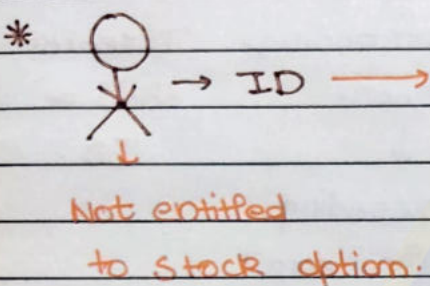 * → ID →
Not entitled
to stock option.